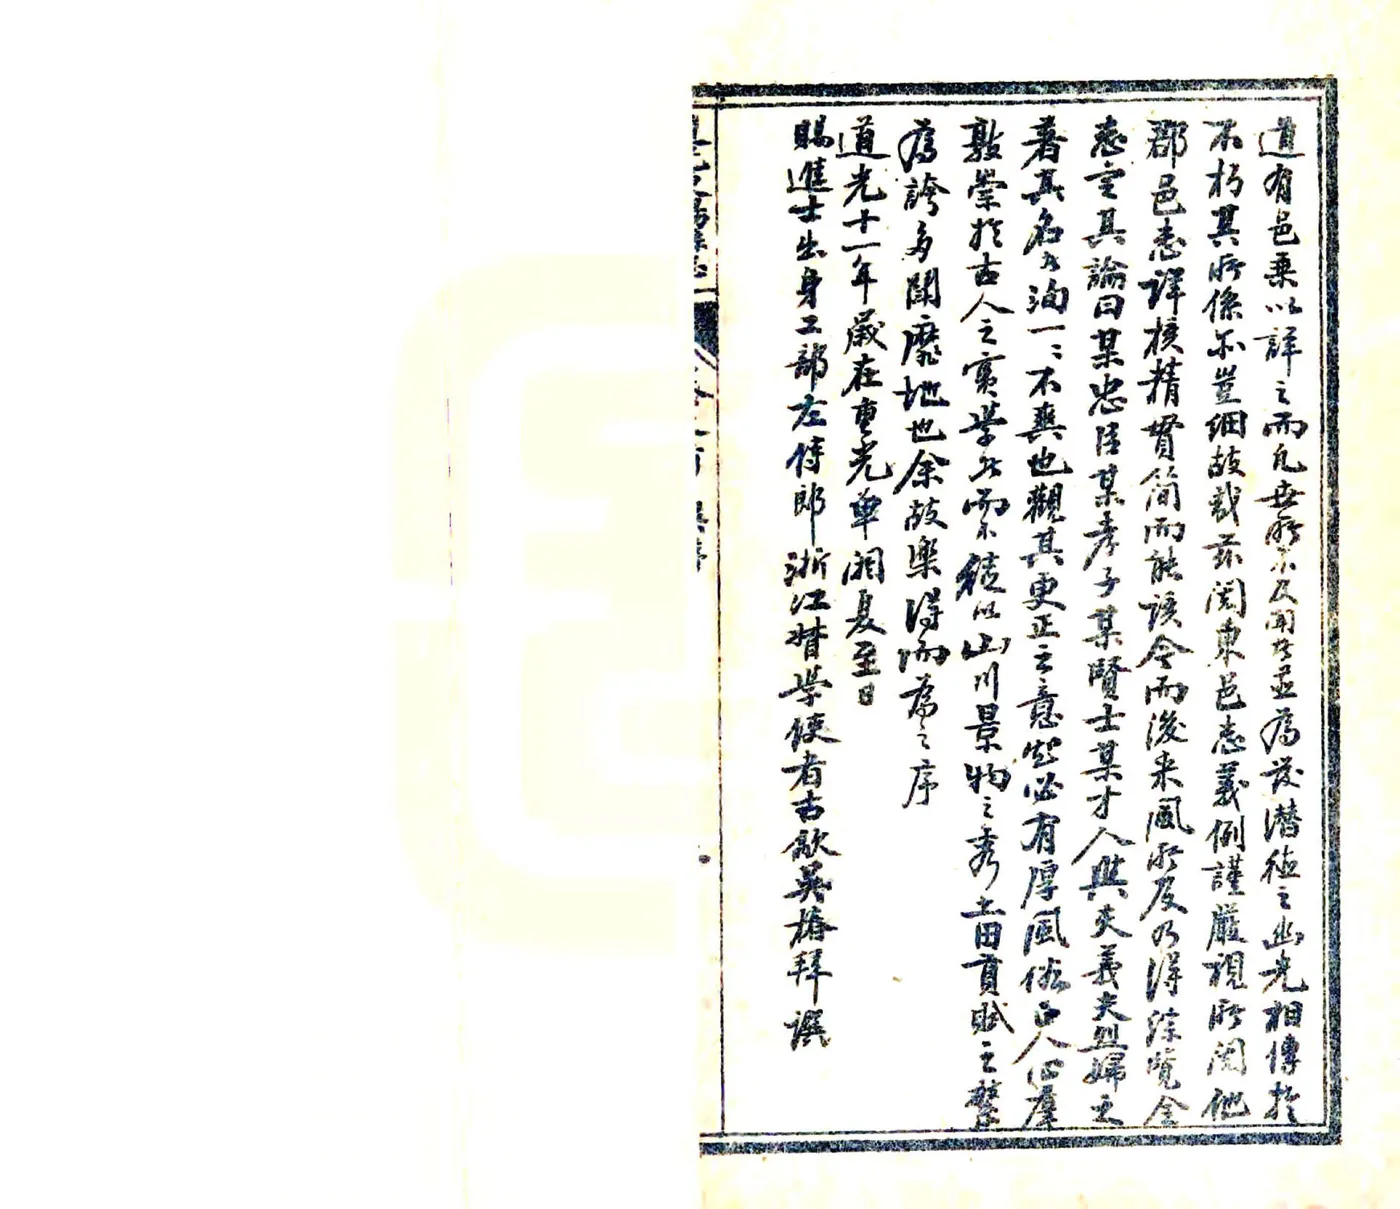 道有邑乘以詳之而凡無所不及聞者並為發潛德之幽光相傳於
不朽其所係亦豈細故哉茲閱東邑志義例謹嚴視所閱他
郡邑志詳核精實簡而能該令而後来風所及乃得綜覽全
志定其論曰某忠臣某孝子某賢士某才人與夫義夫烈婦之
著其名者洵一二不爽也觀其更正之意智必有厚風俗正人心羣
敦崇於古人之實學者而不徒以山川景物之秀土田貢賦之繁
為誇多鬬靡地也余故樂得而為之序
道光十一年歲在重光單閼夏至日
賜進士出身工部左侍郎浙江督學使者古歙吳椿拜譔